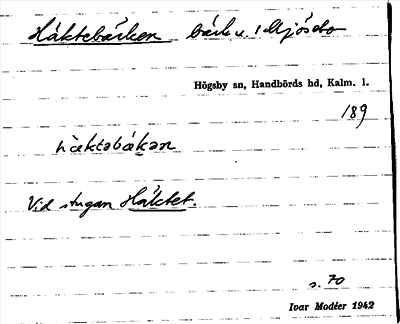 Häktebäcken bäck u. Mjösdo
Högsby sn, Handbörds hd, Kalm. l.
189
hàktəbákan
Vid stugan Häktet.
s. 70
Ivar Modéer 1942